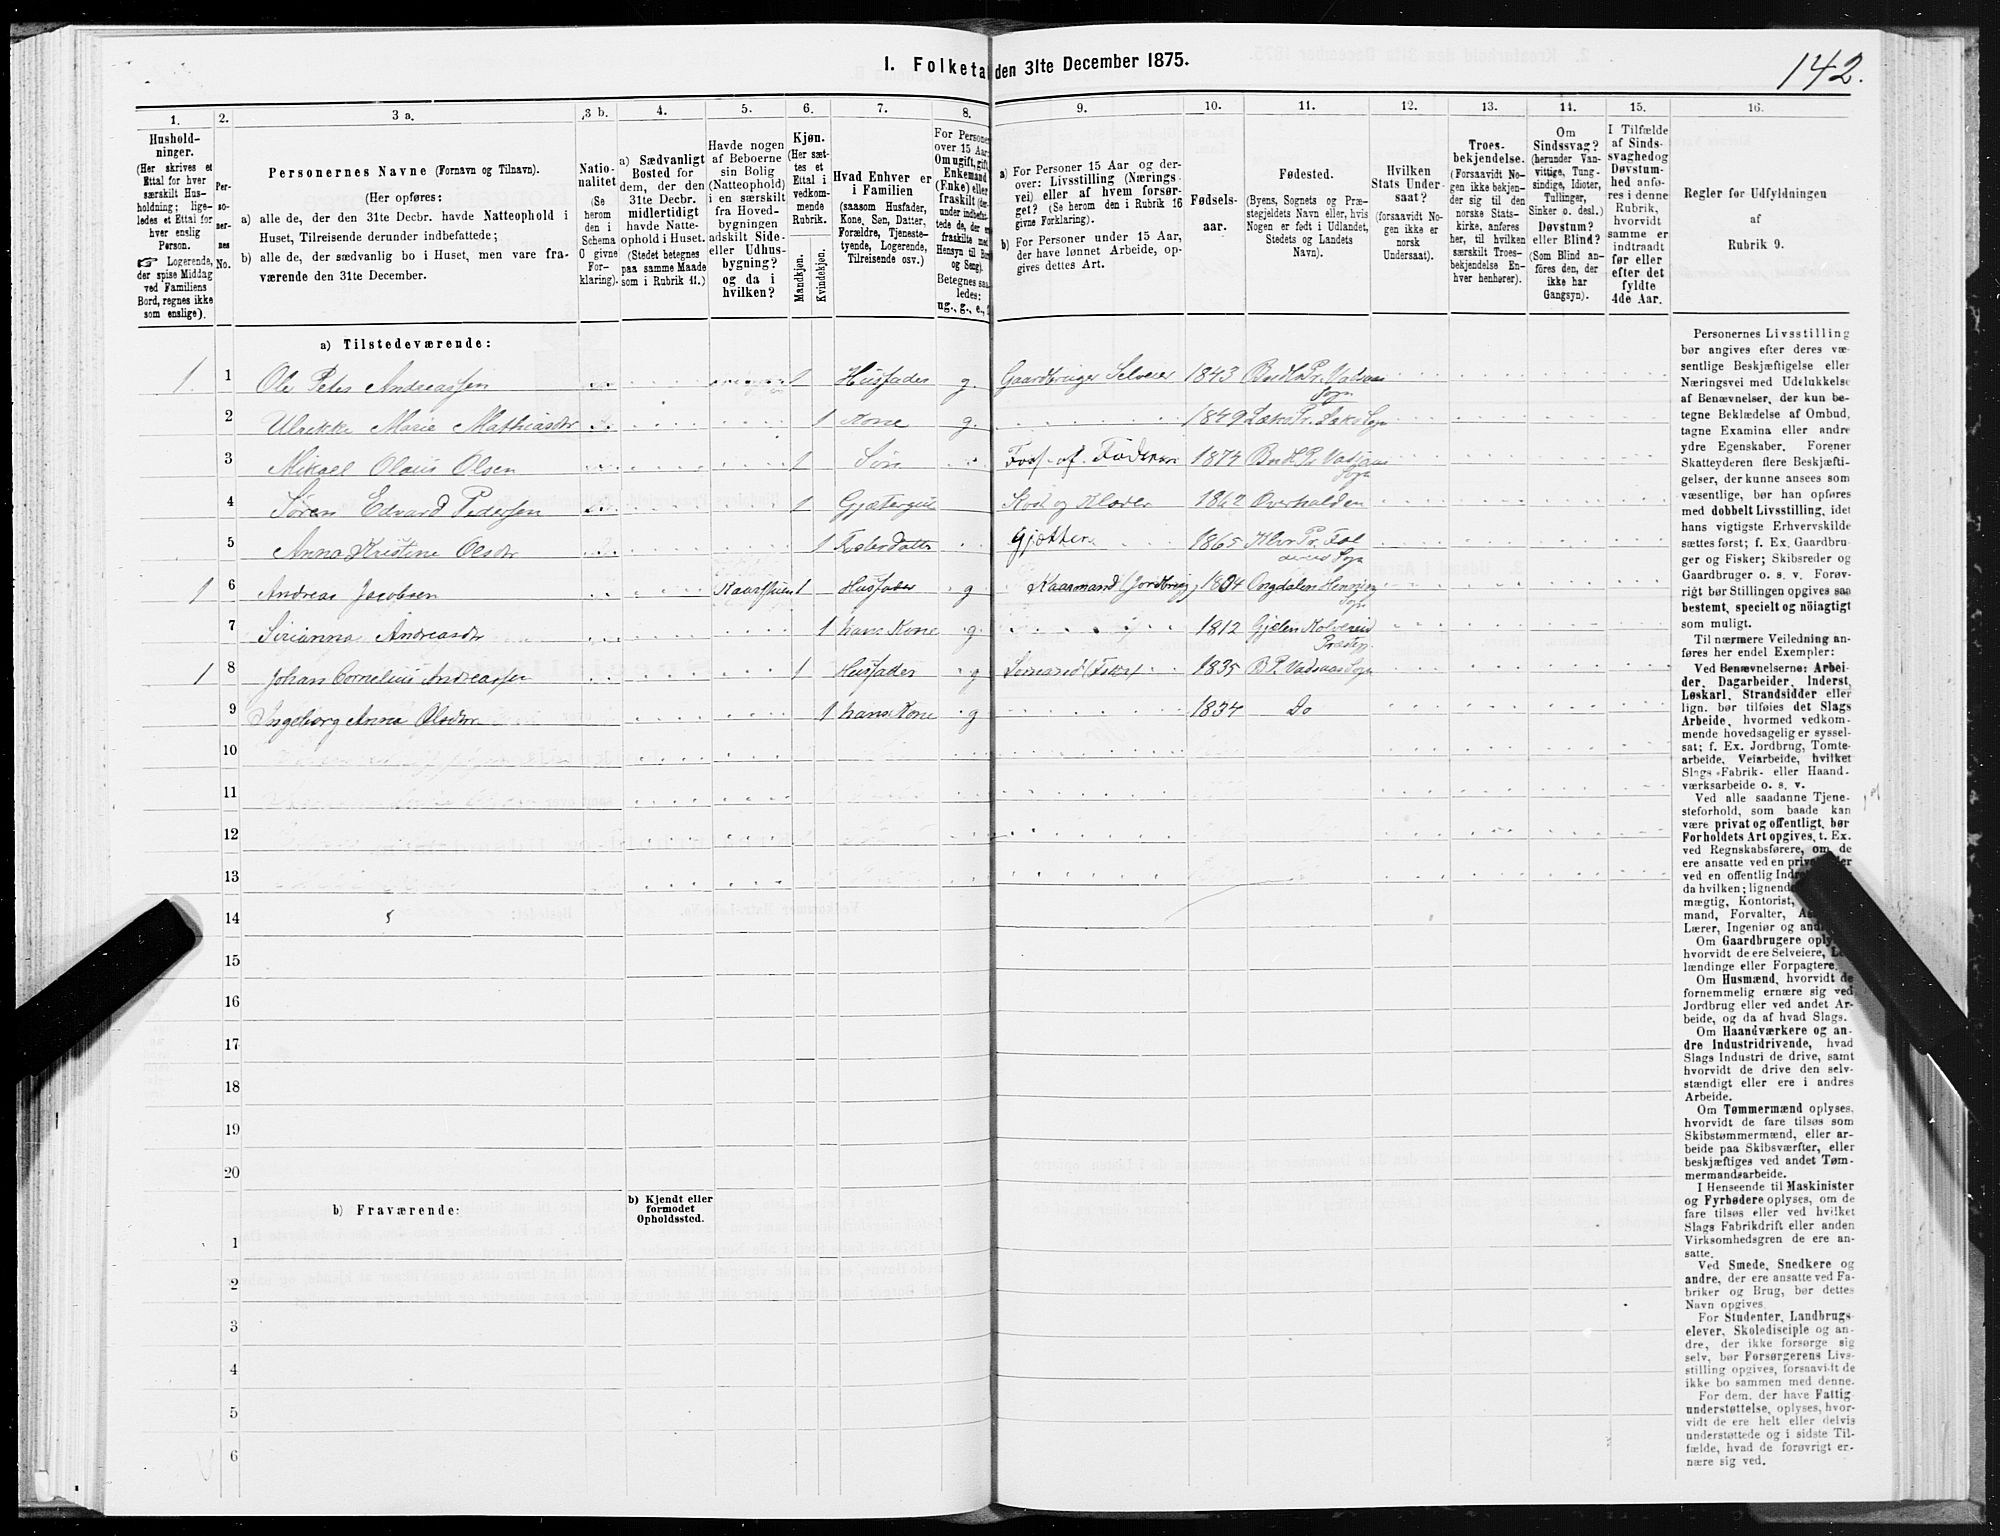 I. Folketa den 31te December 1875.
142.
1. 2. 3 a. 3 b. 4. 5. 6. 7. 8. 9. 10. 11. 12. 13. 14. 15. 16.
Hushold-
ninger.
(Her skrives et
Ettal for hver
særskilt Hus-
holdning; lige-
ledes et Ettal for
hver enslig
Person.
Logerende,
der spise Middag
ved Familiens
Bord, regnes ikke
som enslige).
Per-
so-
ner-
nes
No.
Personernes Navne (Fornavn og Tilnavn).
(Her opføres:
a) alle de, der den 31te Decbr. havde Natteophold i
Huset, Tilreisende derunder indbefattede;
b) alle de, der sædvanlig bo i Huset, men vare fra-
værende den 31te December.
Natio-
nalitet
(Se
herom
den i
Schema
O givne
For-
klaring).
a) Sædvanligt
Bosted for
dem, der den
31te Decbr.
midlertidigt
havde Natte-
ophold i Huset.
(Stedet betegnes
paa samme Maade
som i Rubrik 11.)
Havde nogen
af Beboerne
sin Bolig
(Natteophold)
i en særskilt
fra Hoved-
bygningen
adskilt Side-
eller Udhus-
bygning?
og da i
hvilken?
Kjøn.
(Her sæt-
tes et
Ettal i
vedkom-
mende
Rubrik.
Mandkjøn.
Kvindekjøn.
Hvad Enhver er
i Familien
(saasom Husfader,
Kone, Søn, Datter,
Forældre, Tjeneste-
tyende, Logerende,
Tilreisende osv.)
For Personer
over 15 Aar:
Om ugift, gift,
Enkemand
(Enke) eller
fraskilt (der-
under indbefat-
tede de, der ere
fraskilte med
Hensyn til Bord
og Seng).
Betegnes saa-
ledes:
ug., g., e.,
a) For Personer 15 Aar og der-
over: Livsstilling (Nærings-
vei) eller af hvem forsør-
get? (Se herom den i Rubrik 16
givne Forklaring).
b) For Personer under 15 Aar,
der have lønnet Arbeide, op-
gives dettes Art.
Fødsels-
aar.
Fødested.
(Byens, Sognets og Præ-
stegjeldets Navn eller, hvis
Nogen er født i Udlandet,
Stedets og Landets
Navn).
Hvilken
Stats Under-
saat?
(forsaavidt No-
gen ikke er
norsk
Undersaat).
Troes-
bekjendelse.
(Forsaavidt No-
gen ikke bekjen-
der sig til den
norske Stats-
kirke, anføres
her, til hvilken
særskilt Troes-
bekjendelse En-
hver henhører).
Om
Sindssvag?
(herunder Van-
vittige, Tung-
sindige, Idioter,
Tullinger,
Sinker o. desl.)
Døvstum?
eller Blind?
(Som Blind an-
føres den, der
ikke har
Gangsyn).
I Tilfælde
af Sinds-
svaghed og
Døvstum-
hed anfø-
res i denne
Rubrik,
hvorvidt
samme er
indtraadt
før eller
efter det
fyldte
4de Aar.
Regler for Udfyldningen
af
Rubrik 9.
a) Tilstedeværende:
1 1 Ole Peter Andreassen 1 Husfader g. Gaardbruger Selveier 1843 Bindl. Pr. Vadsaas Sogn
2 Ulrikke Marie Mathiasdtr 1 Kone g. 1849 Lekø Pr. Lekø Sogn
3 Mikael Olaus Olsen 1 Søn Fors. af Faderen 1874 Bindl. Pr. Vadsaas Sogn
4 Søren Edvard Pedersen 1 Gjætergut Kost og Klæder 1862 Overhalden
5 Anna Kristine Olsdtr 1 Fosterdatter Gjætter 1865 Klv. Pr. Fol Sogn
1 6 Andreas Jacobsen Kaarstuen 1 Husfader g Kaarmand (Jordbrug) 1804
7 Sirianna Andreasdtr 1 hans Kone g. 1812 Gjælen Kolvereid Præstgj.
1 8 Johan Cornelius Andreassen 1 Husfader g 1835 B. P. Vadsaas Sogn
9 Ingeborg Anna Olsdtr 1 hans Kone g 1834 Do
10
11
12
13
14
15
16
17
18
19
20
b) Fraværende:
b) Kjendt eller
formodet
Opholdssted.
1
2
3
4
5
6
Personernes Livsstilling
bør angives efter deres væ-
sentlige Beskjæftigelse eller
Næringsvei med Udelukkelse
af Benævnelser, der kun be-
tegne Beklædelse af Ombud,
tagne Examina eller andre
ydre Egenskaber. Forener
Skatteyderen flere Beskjæfti-
gelser, der kunne ansees som
væsentlige, bør han opføres
med dobbelt Livsstilling, idet
hans vigtigste Erhvervskilde
sættes først; f. Ex. Gaardbru-
ger og Fisker; Skibsreder og
Gaardbruger o. s. v. Forøv-
rigt bør Stillingen opgives saa
bestemt, specielt og nöiagtigt
som muligt.
Til nærmere Veiledning an-
føres her endel Exempler:
Ved Benævnelserne: Arbei-
der, Dagarbeider, Inderst,
Løskarl, Strandsidder eller
lign. bør tilføies det Slags
Arbeide, hvormed vedkom-
mende hovedsagelig er syssel-
sat; f. Ex. Jordbrug, Tomte-
arbeide, Veiarbeide, hvilket
Slags Fabrik- eller Haand-
værksarbeide o. s. v.
Ved alle saadanne Tjene-
steforhold, som baade kan
være privat og offentligt, bør
Forholdets Art opgives, t. Ex.
ved Regnskabsførere, om de
ere ansatte ved en privat eller
ved en offentlig Ind
da hvilken; lignend
mægtig, Kontorist,
mand, Forvalter, As
Lærer, Ingeniør og and
Om Gaardbrugere oply
hvorvidt de ere Selveiere, L
lændinge eller Forpagtere.
Om Husmænd, hvorvidt de
fornemmelig ernære sig ved
Jordbrug eller ved andet Ar-
beide, og da af hvad Slags.
Om Haandværkere og an-
dre Industridrivende, hvad
Slags Industri de drive, samt
hvorvidt de drive den selv-
stændigt eller ere i andres
Arbeide.
Om Tømmermænd oplyses,
hvorvidt de fare tilsøs som
Skibstømmermænd, eller ar-
beide paa Skibsværfter, eller
beskjæftiges ved andet Tøm-
mermandsarbeide.
I Henseende til Maskinister
og Fyrbødere oplyses, om de
fare tilsøs eller ved hvilket
Slags Fabrikdrift eller anden
Virksomhedsgren de ere an-
satte.
Ved Smede, Snedkere og
andre, der ere ansatte ved Fa-
briker og Brug, bør dettes
Navn opgives.
For Studenter, Landbrugs-
elever, Skoledisciple og an-
dre, der ikke forsørge sig
selv, bør Forsørgerens Livs-
stilling opgives, forsaavidt de
ikke bo sammen med denne.
For dem, der have Fattig-
understøttelse, oplyses, hvor-
vidt de ere helt eller delvis
understøttede og i sidste Til-
fælde, hvad de forøvrigt er-
nære sig ved.